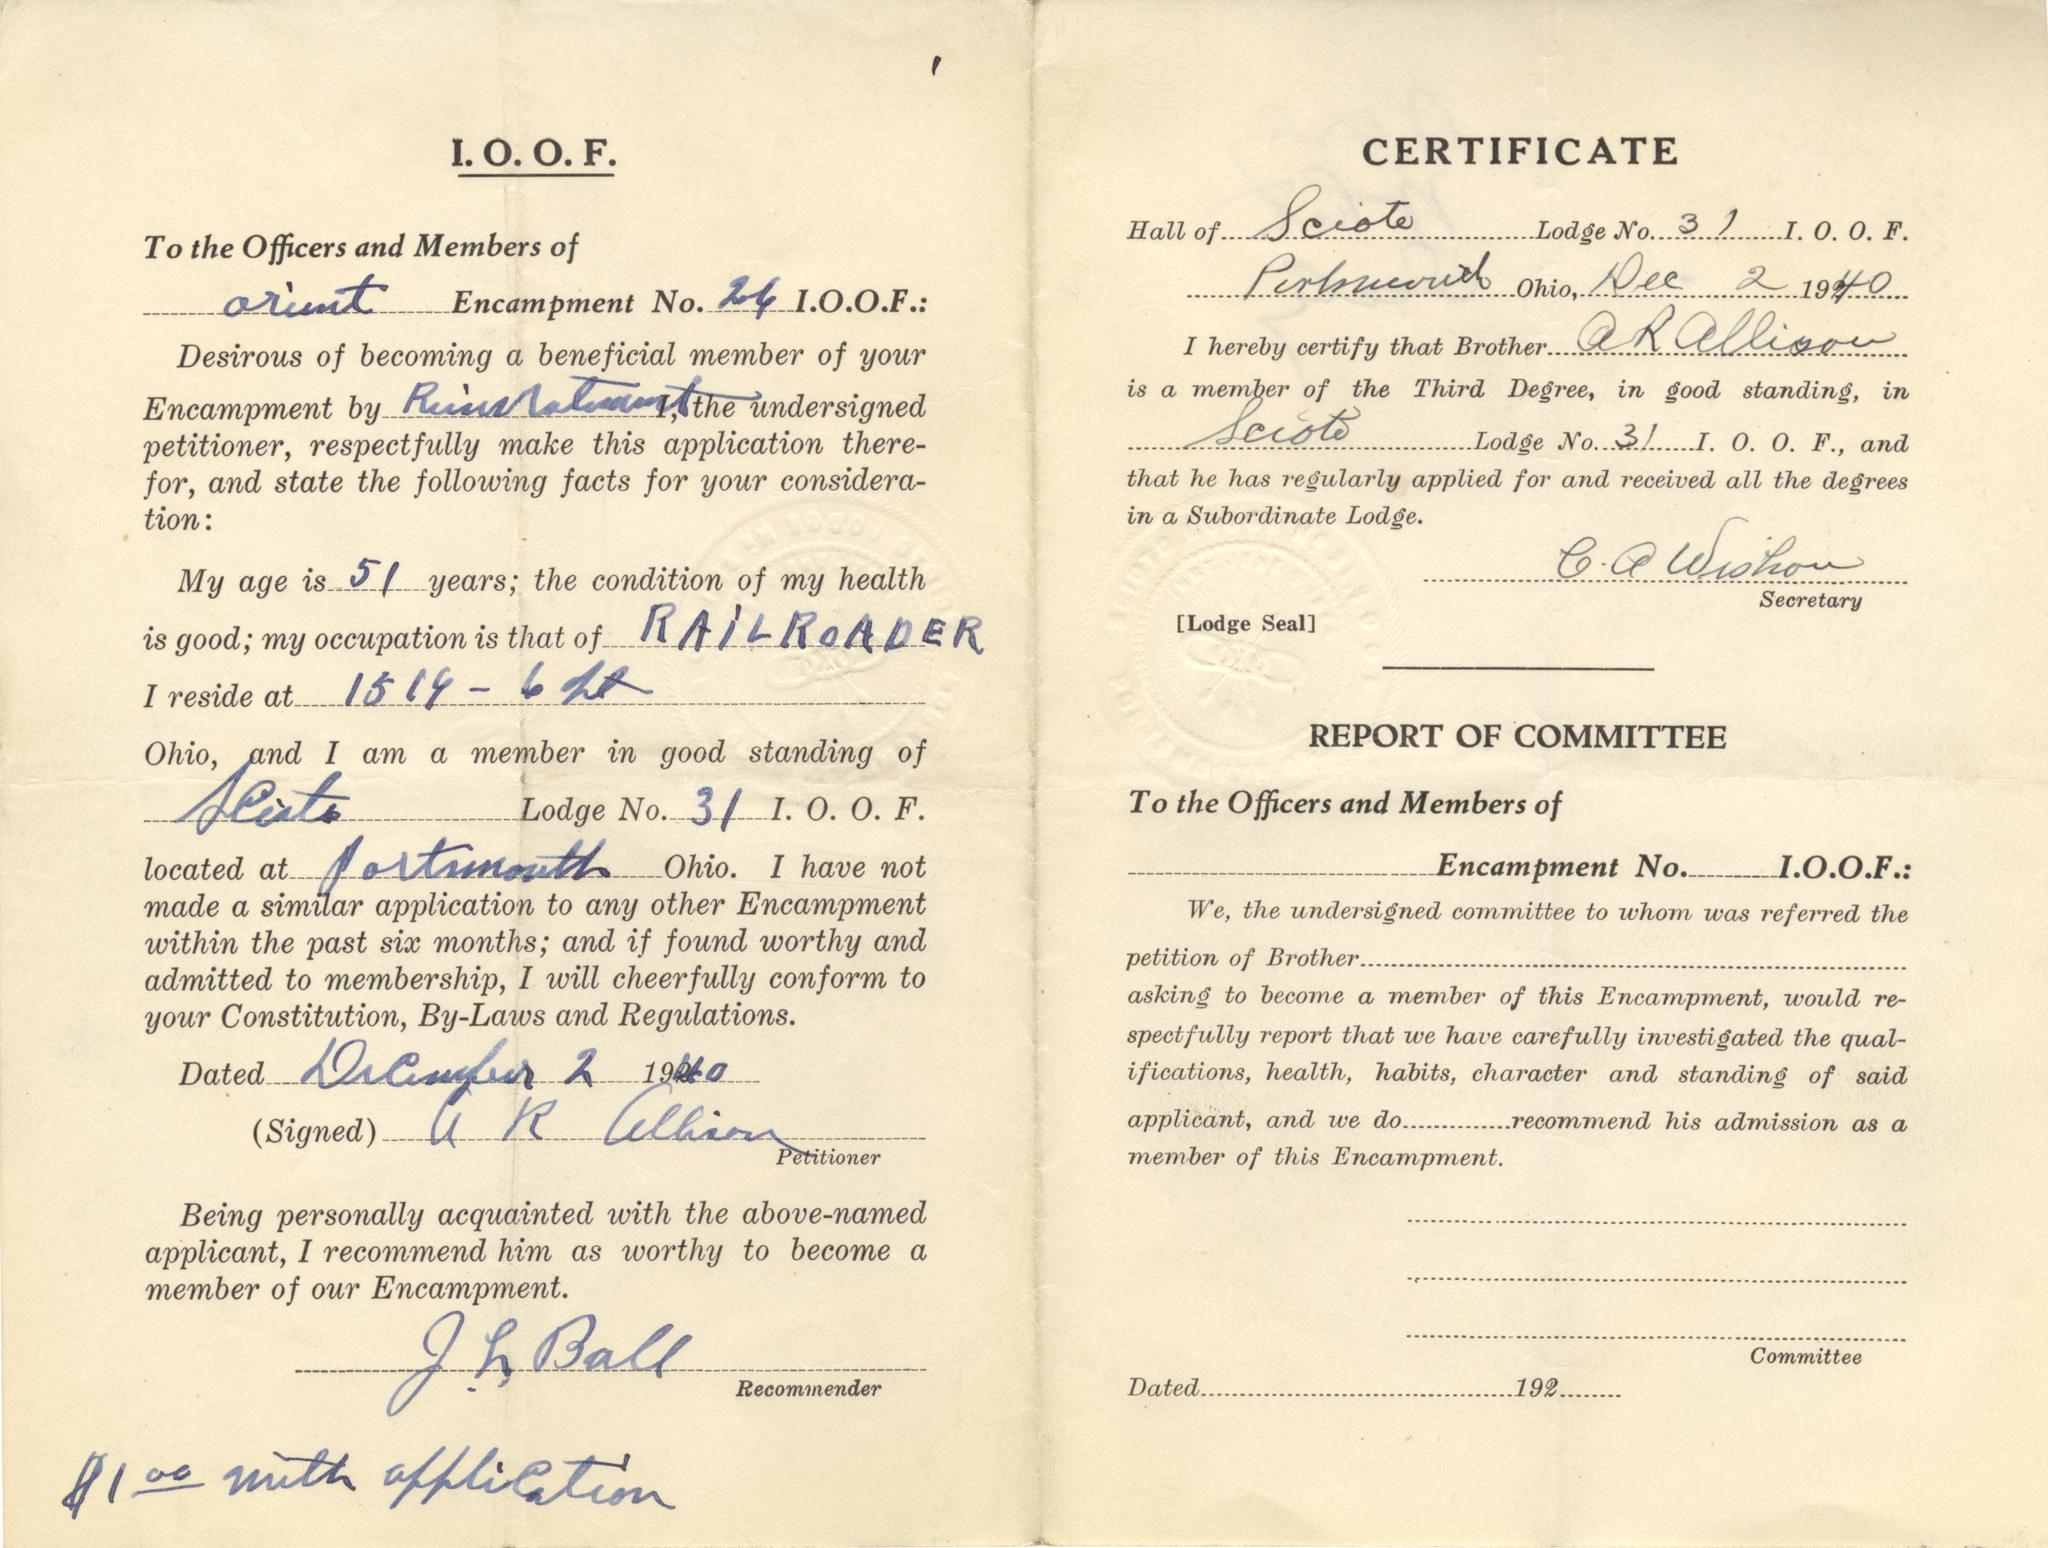 I.O.O.F.
To the Officers and Members of
Orient Encampment No. 26 I.O.O.F.:
Desirous of becoming a beneficial member of your
Encampment by Reinstatement I, the undersigned
petitioner, respectfully make this application there-
for, and state the following facts for your considera-
tion:
My age is 51 years; the condition of my health
is good; my occupation is that of RAILROADER
I reside at 1519 - 6 St
Ohio, and I am a member in good standing of
Scioto Lodge No. 31 I. O. O. F.
located at Portsmouth Ohio. I have not
made a similar application to any other Encampment
within the past six months; and if found worthy and
admitted to membership, I will cheerfully conform to
your Constitution, By-Laws and Regulations.
Dated December 2 1940
(Signed) A R Allison
Petitioner
Being personally acquainted with the above-named
applicant, I recommend him as worthy to become a
member of our Encampment.
J L Ball
Recommender
$1 00 with application
CERTIFICATE
Hall of Scioto Lodge No. 31 I. O. O. F.
Portsmouth Ohio, Dec 2 1940
I hereby certify that Brother A R Allison
is a member of the Third Degree, in good standing, in
Scioto Lodge No. 31 I. O. O. F., and
that he has regularly applied for and received all the degrees
in a Subordinate Lodge.
C. A Wishon
Secretary
[Lodge Seal]
REPORT OF COMMITTEE
To the Officers and Members of
Encampment No. I.O.O.F.:
We, the undersigned committee to whom was referred the
petition of Brother
asking to become a member of this Encampment, would re-
spectfully report that we have carefully investigated the qual-
ifications, health, habits, character and standing of said
applicant, and we do recommend his admission as a
member of this Encampment.
Committee
Dated 192